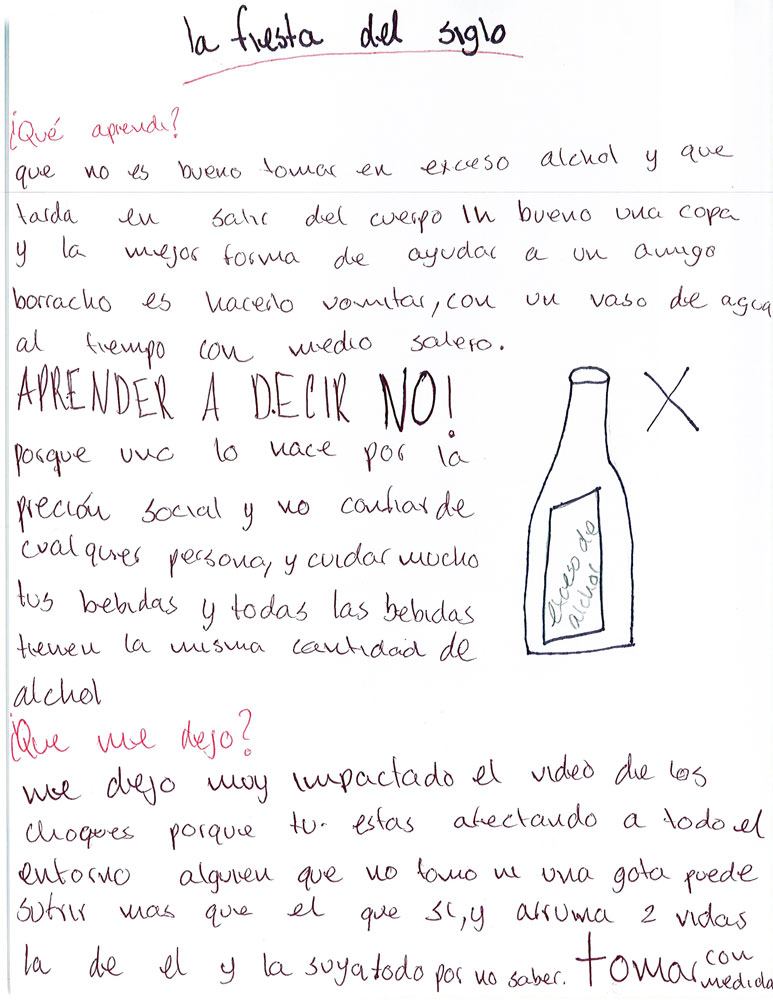 la fiesta del siglo
¿Qué aprendi?
que no es bueno tomar en exceso alchol y que
tarda en salir del cuerpo 1h bueno una copa
y la mejor forma de ayudar a un amigo
borracho es hacerlo vomitar, con un vaso de agua
al tiempo con medio salero.
APRENDER A DECIR NO!
porque uno lo hace por la
preción social y no confiar de
cualquier persona, y cuidar mucho
tus bebidas y todas las bebidas
tienen la misma cantidad de
alchol
exceso de
alchol
X
¿Que me dejo?
me dejo muy impactado el video de los
choques porque tu estas afectando a todo el
entorno alguien que no tomo ni una gota puede
sufrir mas que el que si, y arruina 2 vidas
la de el y la suya todo por no saber. tomar con
medida